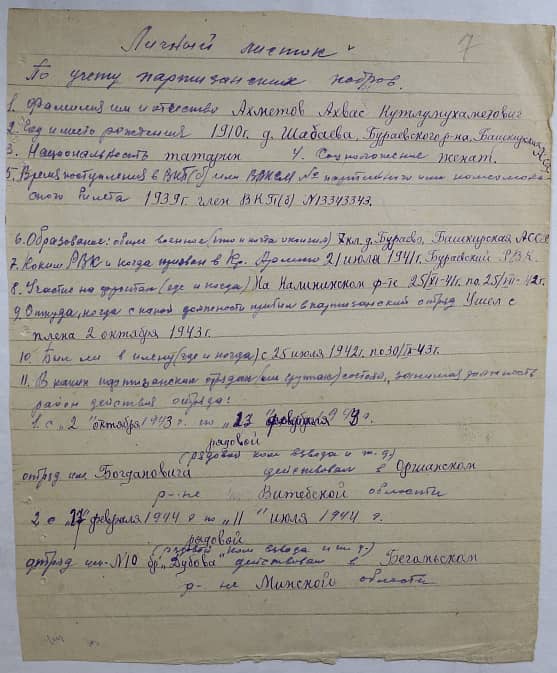 7
Личный листок
По учету партизанских кадров.
1. Фамилия им и отчество Ахметов Ахвас Кутлумухаметович
2. Год и место рождения 1910г. д. Шабаева, Бураевского р-на, Башкирская АССР
3. Национальность татарин 4. Соцположение женат.
5. Время поступления в ВКП(б) или ВЛКСМ № партийного или комсомоль-
ского билета 1939г. член ВКП(б) №13343343.
6. Образование: общее военное (что и когда окончил) 7кл. д. Бураево, Башкирская АССР
7. Каким РВК и когда призван в Кр. Армию 21 июля 1941г. Бураевский РВК.
8. Участие на фронтах (где и когда) На Калининском ф-те 25/XI-41г. по 25/VII-42г.
9. Откуда, когда с какой должности прибыл в партизанский отряд Ушел с
плена 2 октября 1943г.
10. Был ли в плену (где и когда) с 25 июля 1942г. по 30/IX-43г.
11. В каких партизанских отрядах (или группах) состоял, занимая должность
район действия отряда:
1. с „2" октября 1943 г. по „17" февраля 1944 г.
рядовой
(рядовой ком взвода и т. д.)
отряд им. Богдановича действовал в Оршанском
р-не Витебской области
2 с „17" февраля 1944 г по „11" июля 1944 г.
рядовой
(рядовой ком взвода и т. д.)
отряд им. №10 бр. „Дубова" действовал в Бегомльском
р-не Минской области